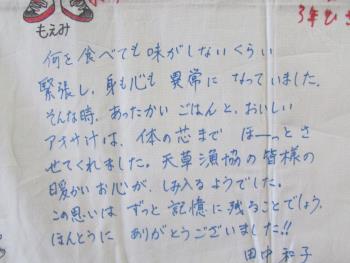 もえみ
3年ひさ
何を食べても味がしないくらい
緊張し、身も心も異常になっていました。
そんな時、あったかいごはんと、おいしい
アオサ汁は、体の芯までほーっとさ
せてくれました。天草漁協の皆様の
暖かいお心が、しみ入るようでした。
この思いはずっと記憶に残ることでしょう。
ほんとうにありがとうございました!!
田中和子